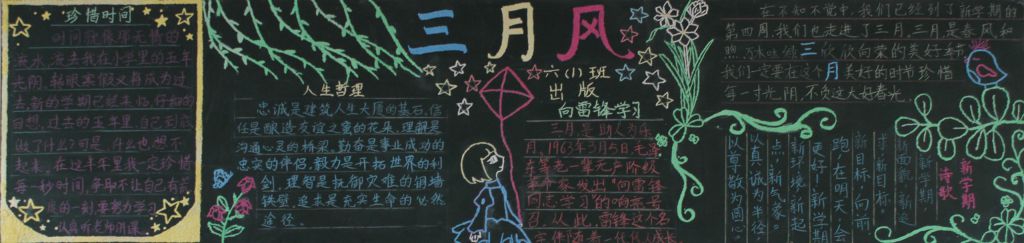 珍惜时间
时间就像那无情的
流水,流去我在小学里的五年
光阴,转眼寒假又将成为过
去,新的学期已经来临,仔细的
回想,过去的五年里,自己到底
做了什么?可是,什么也想不
起来,在这半年里我一定珍惜
每一秒时间,争取不让自己有
的一刻要努力学习
认真听老师讲课
三月风
六(1)班
出版
人生哲理
忠诚是建筑人生大厦的基石,信
任是酿造友谊之蜜的花朵,理解是
沟通心灵的桥梁,勤奋是事业成功的
忠实的伴侣,毅力是开拓世界的利
剑,理智是抚御灾难的铜墙
铁壁,追求是充实生命的必然
途径。
向雷锋学习
三月,是助人为乐
月,1963年3月5日毛泽
东等老一辈无产阶级
革命家发出“向雷锋
同志学习”的响亮号
召,从此,雷锋这个名
字伴随着一代代人成长
在不知不觉中,我们已经到了新学期的
第四周,我们也走进了三月,三月是春风和
煦,欣欣向荣的美好
我们一定要在这个月美好的时节珍惜
每一寸光阴,不负这大好春光。
新学期
诗歌
新学期
新面貌,新追
求,新目标
新目标,向前
跑,在明天会
更好,新学期
新环境,新起
点,新气象。
以真诚为半径,
以尊敬为圆心,